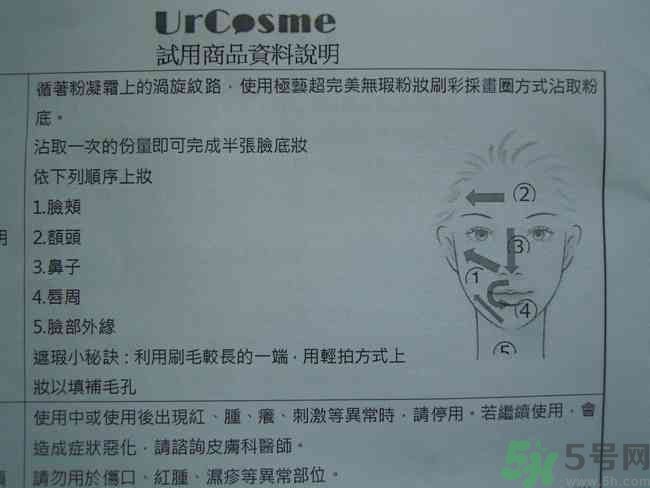 UrCosme
試用商品資料說明
循著粉凝霜上的渦旋紋路，使用極藝超完美無瑕粉妝刷彩採畫圈方式沾取粉
底。
沾取一次的份量即可完成半張臉底妝
依下列順序上妝
1.臉頰
2.額頭
3.鼻子
4.唇周
5.臉部外緣
遮瑕小秘訣：利用刷毛較長的一端，用輕拍方式上
妝以填補毛孔
②
③
①
④
⑤
明
使用中或使用後出現紅、腫、癢、刺激等異常時，請停用。若繼續使用，會
造成症狀惡化，請諮詢皮膚科醫師。
請勿用於傷口、紅腫、濕疹等異常部位。
5号网
www.5h.com